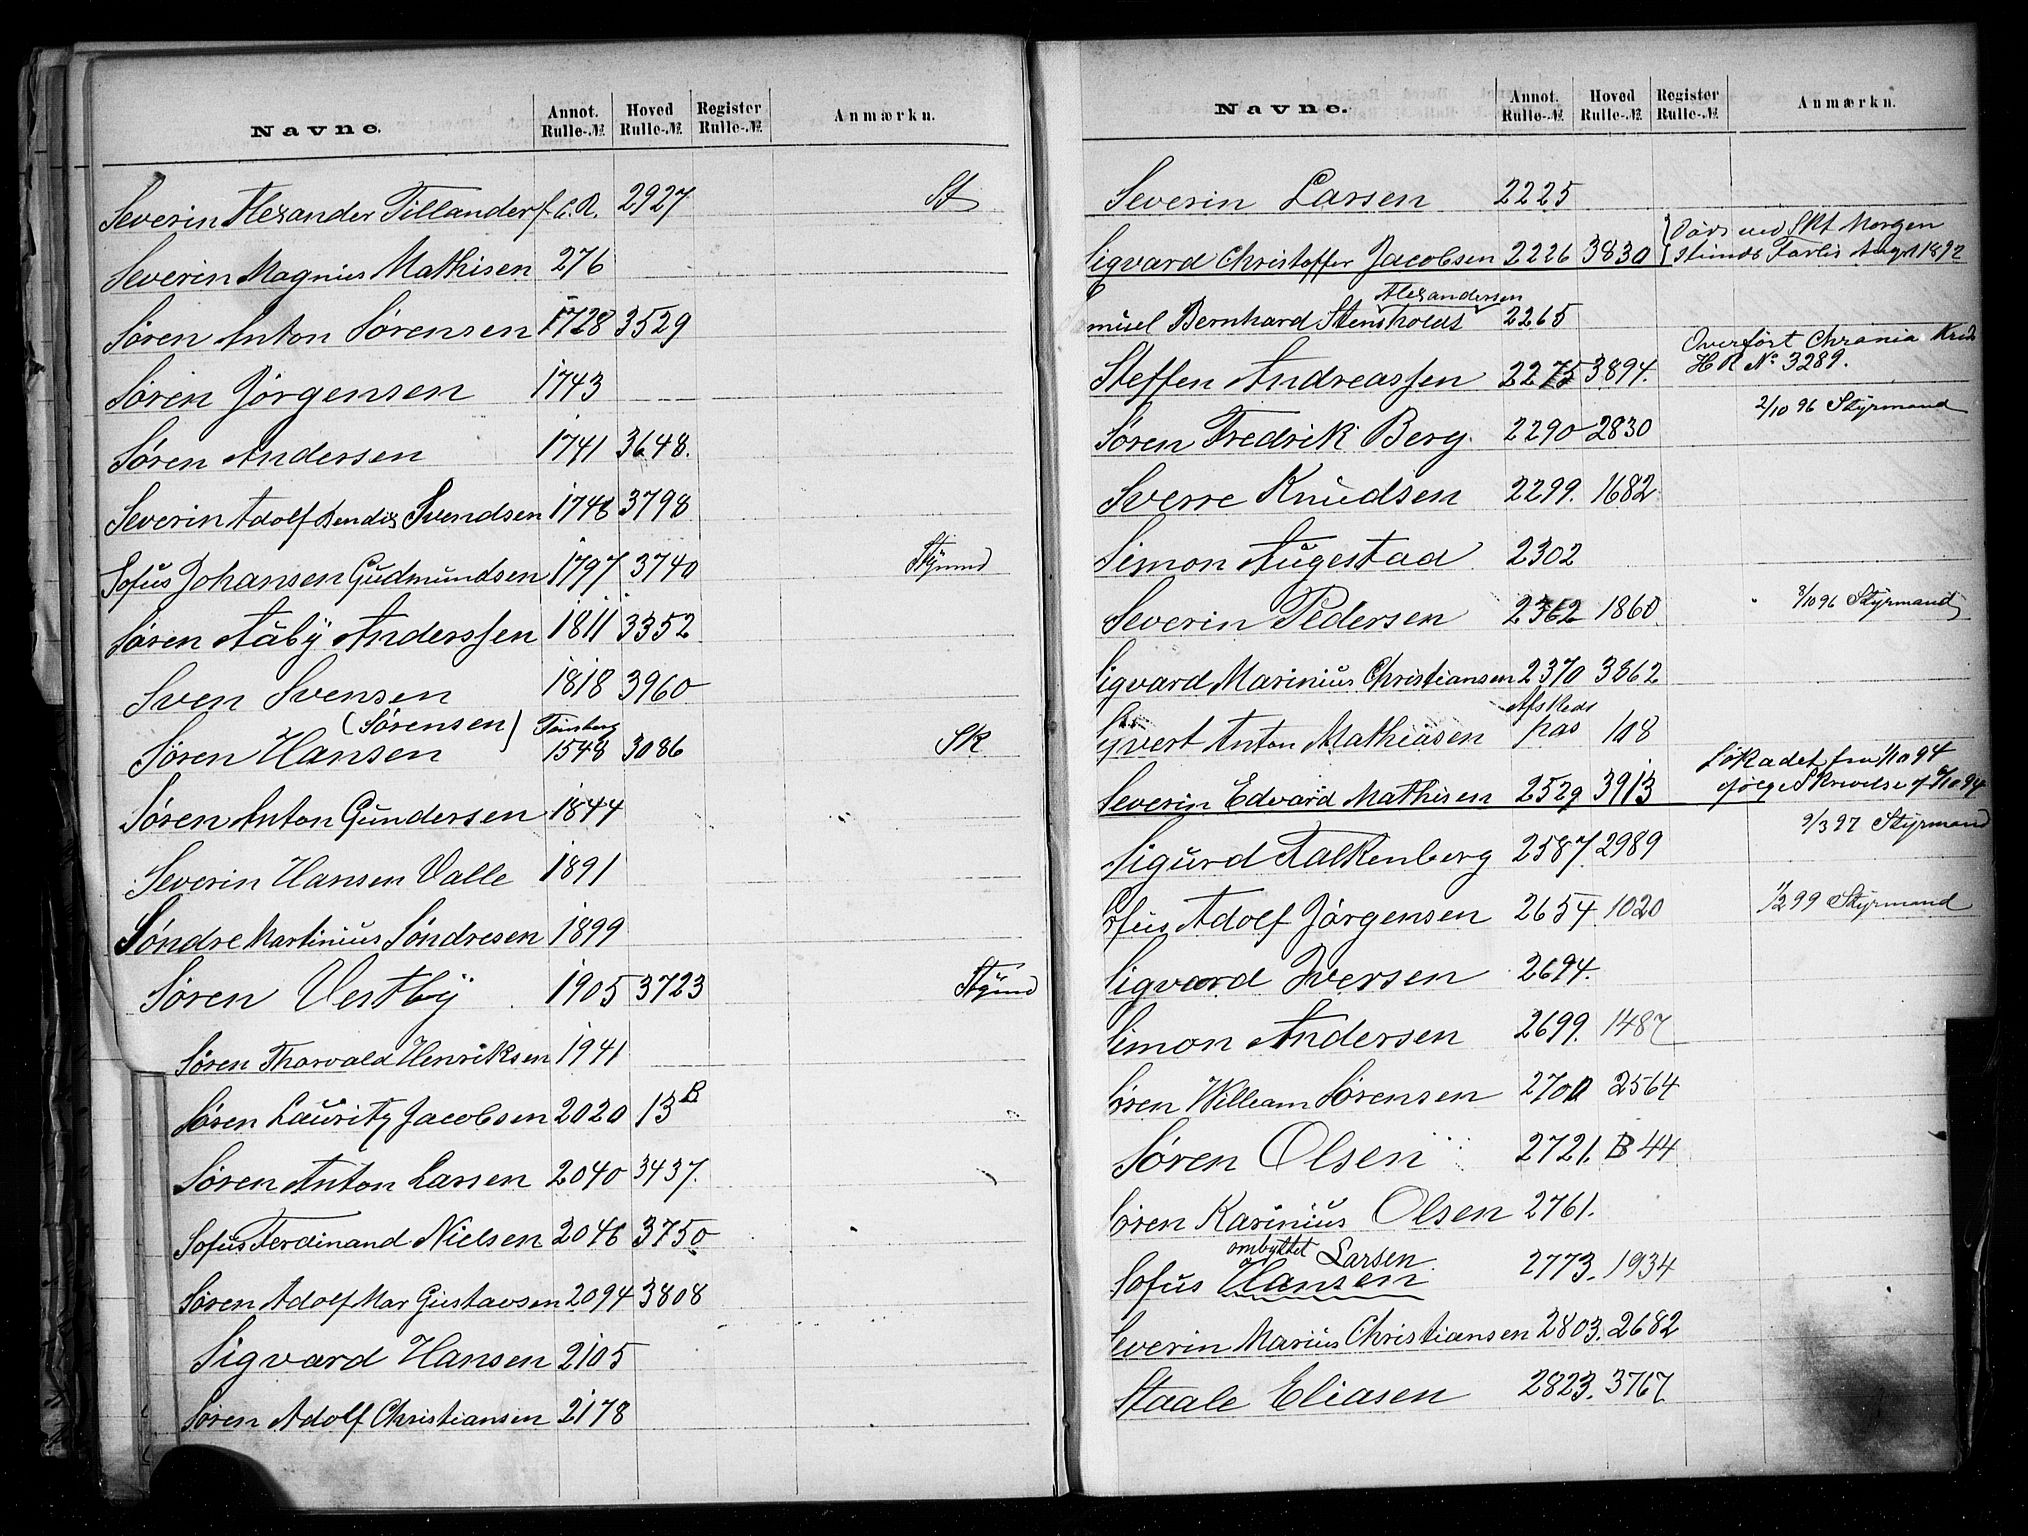 Navne. Annot. Rulle-№ Hoved Rulle-№ Register Rulle-№ Anmærkn.
Severin Alexander Tillander f. C.R. 2927 St
Severin Magnus Mathisen 276
Søren Anton Sørensen 1728 3529
Søren Jörgensen 1743
Søren Andersen 1741 3648.
Severin Adolf Bendix Svendsen 1748 3798
Sofus Johansen Gudmundsen 1797 3740 Stÿrmd
Søren Aaby Anderssen 1811 3352
Sven Svensen 1818 3960
(Sørensen)
Søren Hansen 1548 3086 SK
Søren Anton Gundersen 1844
Severin Hansen Valle 1891
Söndre Martinius Söndresen 1899
Søren Vestby 1905 3723 Stÿrmd
Søren Thorvald Henriksen 1941
Søren Lauritz Jacobsen 2020 13 B
Søren Anton Larsen 2040 3437.
Sofus Ferdinand Nielsen 2046 3750
Søren Adolf Mar Gustavsen 2094 3808
Sigvard Hansen 2105
Søren Adolf Christiansen 2178
Navne. Annot. Rulle-№ Hoved Rulle-№ Register Rulle-№ Anmærkn.
Severin Larsen 2225
Död ved Skt Morgen
Sigvard Christoffer Jacobsen 2226 3830 stunds Forlis Augst 1892
Alexandersen
Bernhard Stensholdt 2265
Overført Chrania Krds
Steffen Andreassen 2275 3894. HR No 3289.
2/10 96 Styrmand
Søren Fredrik Berg. 2290 2830
Sverre Knudsen 2299. 1682
Simon Augestad 2302
Severin Pedersen 2362 1860. 8/10 96 Styrmand
Sigvard Marinius Christiansen 2370 3862
Afskeds
Syvert Anton Mathiasen pas 108
Søkadet fra 1/10 94
Severin Edvard Mathisen 2529 3913 ifølge Skrivelse af 6/10 94
9/3 97 Styrmand
Sigurd Falkenberg 2587. 2989
Sofus Adolf Jörgensen 2654. 1020 1/2 99 Styrmand
Sigvard Iversen 2694.
Simon Andersen 2699. 1487
Søren William Sørensen 2700 2564
Søren Olsen 2721. B 44
Søren Karinius Olsen 2761.
ombyttet Larsen.
Sofus Hansen 2773. 1934
Severin Marius Christiansen 2803. 2682
Staale Eliasen 2823. 3767